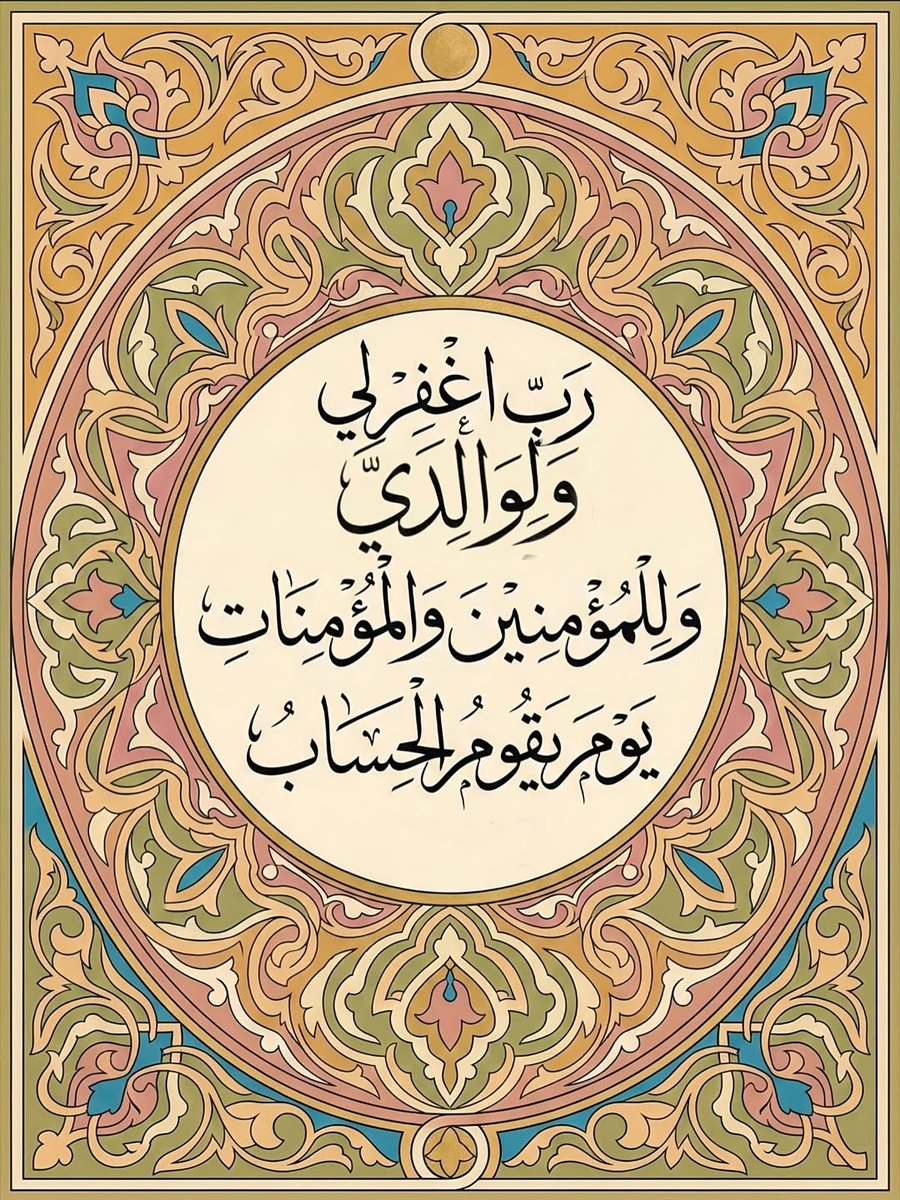 رَبِّ اغْفِرْ لِي
وَلِوَالِدَيَّ
وَلِلْمُؤْمِنِينَ وَالْمُؤْمِنَاتِ
يَوْمَ يَقُومُ الْحِسَابُ